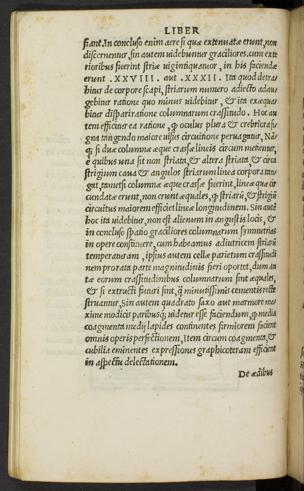 LIBER
fiant. In concluso enim aere si quæ extenuatæ erunt, non
discernentur, sin autem uidebuntur graciliores. cum exte
rioribus fuerint striæ uigintiquatuor, in his faciendæ
erunt .XXVIII. aut .XXXII. Ita quod detra
hitur de corpore scapi, striarum numero adiecto adau
gebitur ratione quo minus uidebitur, & ita exæqua
bitur dispari ratione columnarum crassitudo. Hoc au
tem efficit ea ratione, q oculus plura & crebriora si
gna tangendo maiore uisus circuitione peruagatur, Nā
q si duæ columnæ æque crassæ lineis circum metientur,
e quibus una sit non striata, & altera striata, & circa
strigium caua & angulos striarum linea corpora tan
gat, tametsi columnæ æque crassæ fuerint, lineæ quæ cir
cundatæ erunt, non erunt æquales, q striarū, & strigiū
circuitus maiorem efficiet lineæ longitudinem. Sin autē
hoc ita uidebitur, non est alienum in angustis locis, &
in concluso spatio graciliores columnarum symmetrias
in opere constituere, cum habeamus adiutricem striarū
temperaturam, ipsius autem cellæ parietum crassitudi
nem pro rata parte magnitudinis fieri oportet, dum an
tæ eorum crassitudinibus columnarum sint æquales,
& si extructi futuri sint, q minutissimis cementis recte
struantur, Sin autem quadrato saxo aut marmore ma
xime modicis paribusq; uidetur esse faciendum, q media
coagmenta medij lapides continentes firmiorem facient
omnis operis perfectionem, Item circum coagmenta, &
cubilia eminentes expressiones graphicoteram efficient
in aspectu delectationem.
De ædibus